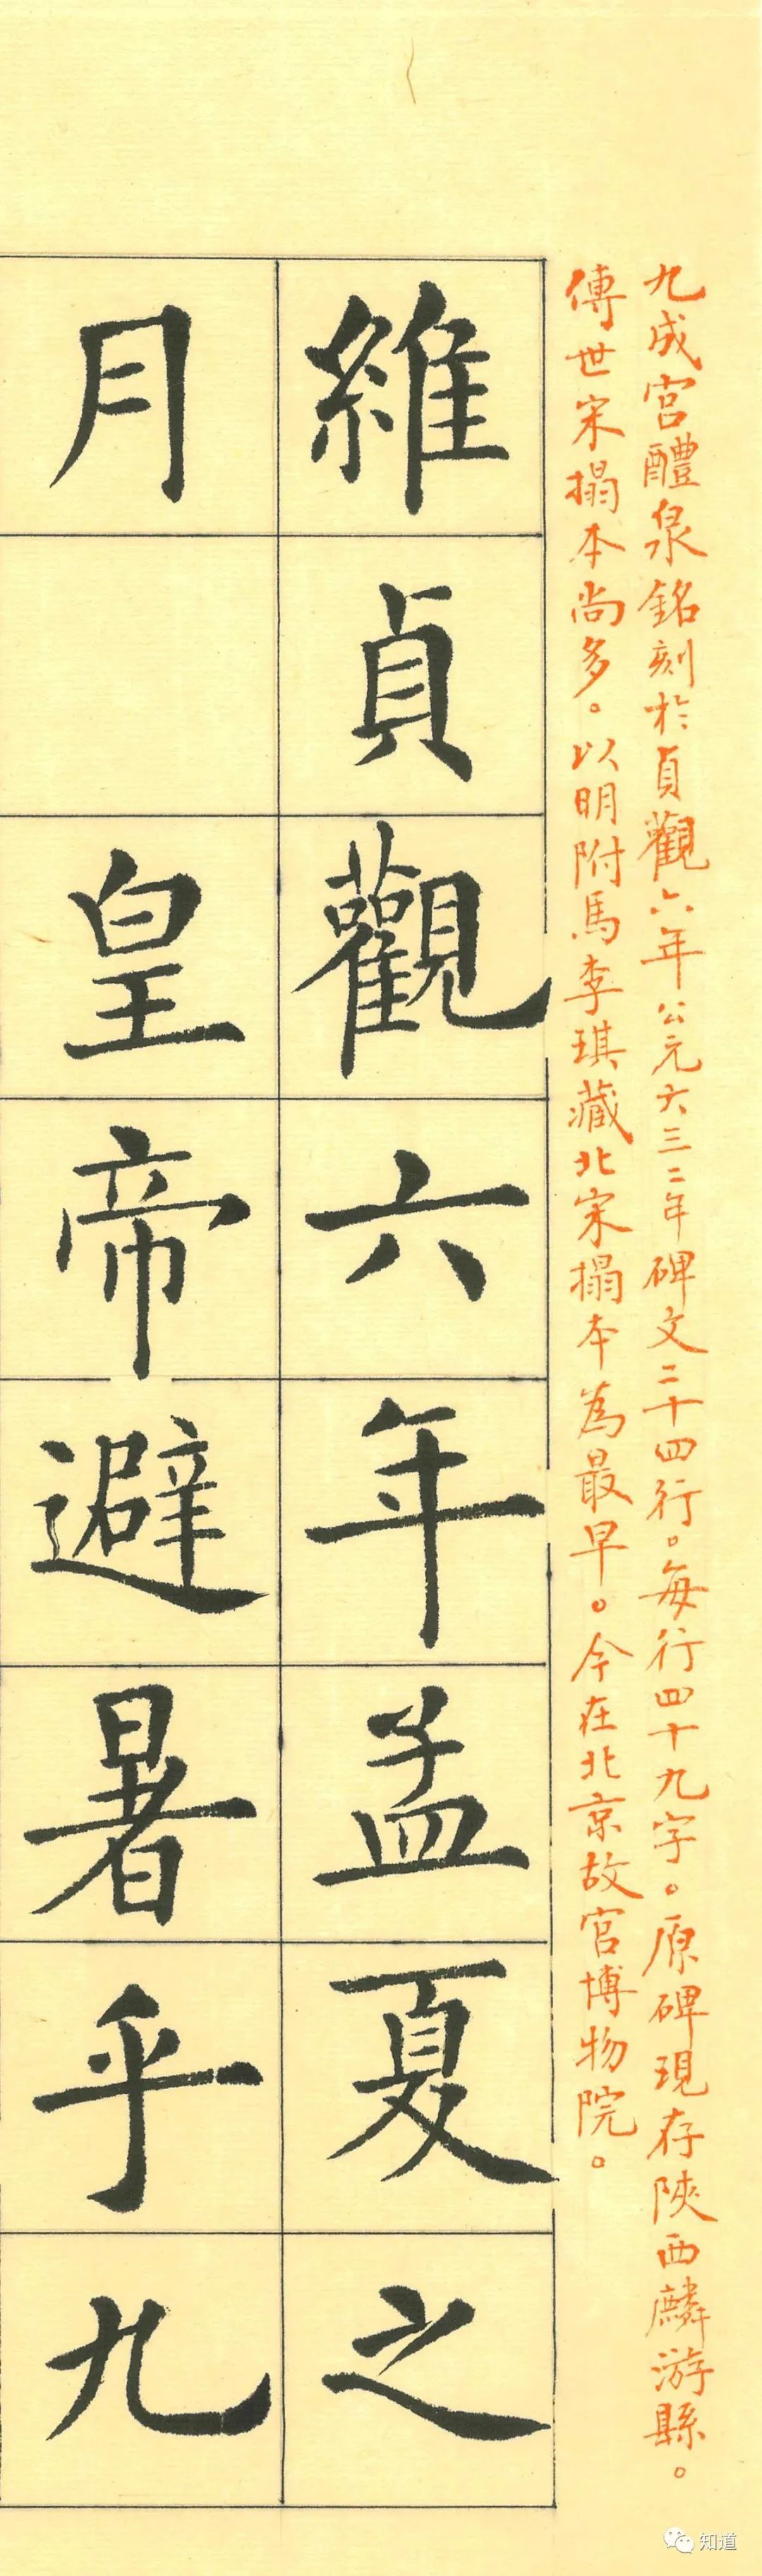 九成宫醴泉銘刻於貞觀六年公元六三二年碑文二十四行。每行四十九字。原碑現存陝西麟游縣。
傳世宋搨本尚多。以明附馬李琪藏北宋搨本為最早。今在北京故宫博物院。
維貞觀六年孟夏之
月 皇帝避暑乎九
知道